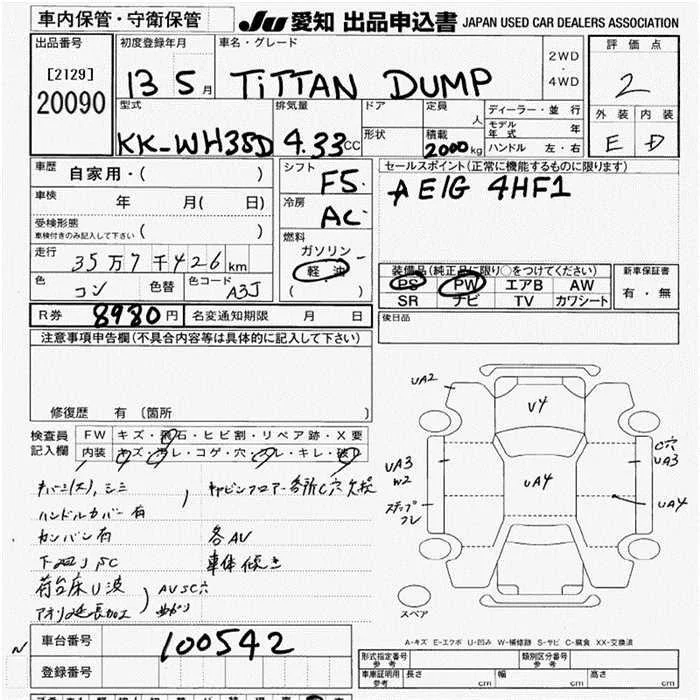 車内保管・守衛保管
JU 愛知 出品申込書 JAPAN USED CAR DEALERS ASSOCIATION
出品番号 初度登録年月 車名・グレード 評価点
[2129]
20090
13 5月 TiTTAN DUMP
2WD
・
4WD
2
型式 排気量 ドア 定員 人 ディーラー・並行 外装 内装
モデル年式 年
KK-WH38D 4.33CC 形状 積載 2000kg ハンドル 左・右 E D
車歴 自家用・( ) シフト F5. セールスポイント(正常に機能するものに限ります)
A E/G 4HF1
車検 年 月( 日) 冷房 AC
受検形態
車検付きのみ記入して下さい ( )
燃料
ガソリン
軽・油
( )
走行 35万7千426km
装備品(純正品に限り○をつけてください) 新車保証書
色 コン 色替 色コード A3J
PS PW エアB AW 有・無
SR ナビ TV カワシート
R券 8980円 名変通知期限 月 日 後日品
注意事項申告欄(不具合内容等は具体的に記入して下さい)
修復歴 有 〔箇所 〕
検査員
記入欄
FW キズ・飛石・ヒビ割・リペア跡・X要
内装 キズ・汚レ・コゲ・穴・スレ・キレ・破レ
ハンドルカバー有
カンバン有 各AV
下廻りSC 車体傾き
荷台床U波 AVSC穴
アオリ延長加工 曲がり
UA2
V4
UA3
W2
UA4
C穴
UA3
ステップ
フレ
UA4
スペア
A-キズ E-エクボ U-凹み W-補修跡 S-サビ C-腐食 XX-交換済
車台番号 100542
登録番号
型式指定番号
参考
類別区分番号
参考
車庫証明用
参考
長さ cm 幅 cm 高さ cm